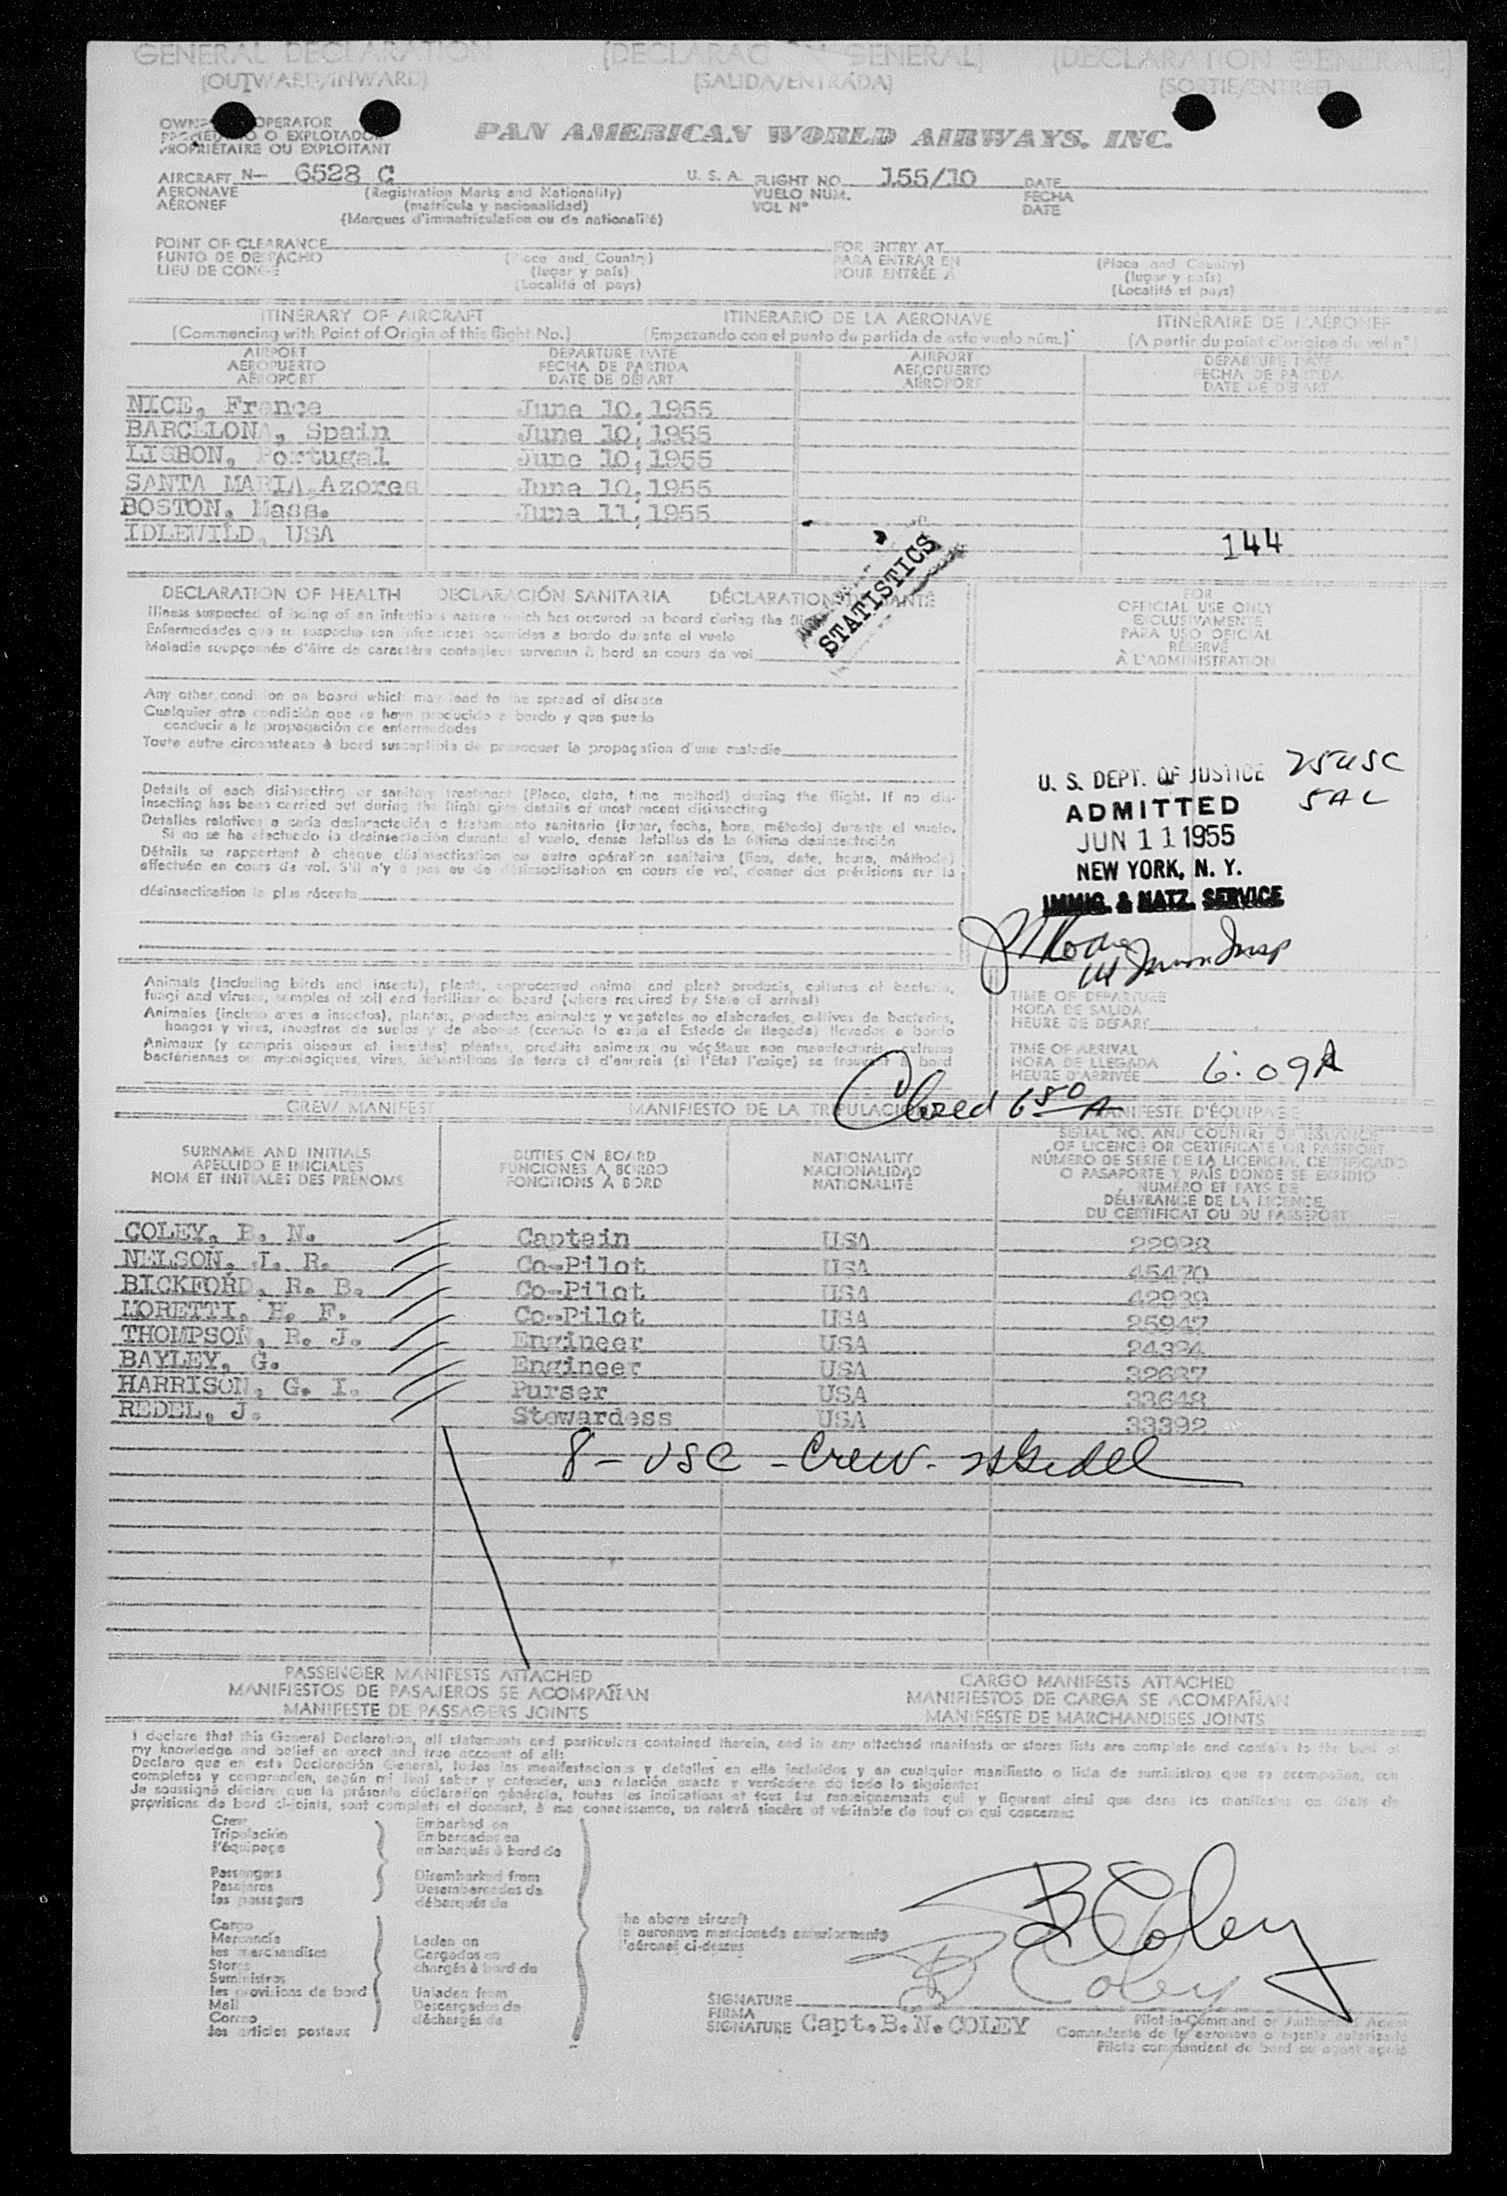 GENERAL DECLARATION (DECLARACION GENERAL) (DECLARATION GENERALE)
(OUTWARD/INWARD) (SALIDA/ENTRADA) (SORTIE/ENTREE)
OWNER OPERATOR
O EXPLOTADOR
PROPRIÉTAIRE OU EXPLOITANT
PAN AMERICAN WORLD AIRWAYS, INC.
AIRCRAFT N- 6528 C U. S. A. FLIGHT NO. 155/10 DATE
AERONAVE (Registration Marks and Nationality) VUELO NUM. FECHA
AÉRONEF (matrícula y nacionalidad) VOL Nº DATE
(Marques d'immatriculation ou de nationalité)
POINT OF CLEARANCE FOR ENTRY AT
PUNTO DE DESPACHO (Place and Country) PARA ENTRAR EN (Place and Country)
LIEU DE CONGÉ (lugar y país) POUR ENTRÉE A (lugar y país)
(Localité et pays) (Localité et pays)
ITINERARY OF AIRCRAFT ITINERARIO DE LA AERONAVE ITINÉRAIRE DE L'AÉRONEF
(Commencing with Point of Origin of this flight No.) (Empezando con el punto de partida de este vuelo núm.) (A partir du point d'origine du vol nº)
AIRPORT DEPARTURE DATE AIRPORT DEPARTURE DATE
AEROPUERTO FECHA DE PARTIDA AEROPUERTO FECHA DE PARTIDA
AÉROPORT DATE DE DÉPART AÉROPORT DATE DE DÉPART
NICE, France June 10, 1955
BARCLLONA, Spain June 10, 1955
LISBON, Portugal June 10, 1955
SANTA MARIA, Azores June 10, 1955
BOSTON, Mass. June 11, 1955
IDLEWILD, USA
144
STATISTICS
DECLARATION OF HEALTH DECLARACIÓN SANITARIA DÉCLARATION SANTÉ
Illness suspected of being of an infectious nature which has occured on board during the
Enfermedades que se sospecha son infecciosas ocurridas a bordo durante el vuelo
Maladie soupçonnée d'être de caractère contagieux survenue à bord en cours de vol
FOR
OFFICIAL USE ONLY
EXCLUSIVAMENTE
PARA USO OFICIAL
RÉSERVÉ
À L'ADMINISTRATION
Any other condition on board which may lead to the spread of disease
Cualquier otra condición que se haya producido a bordo y que pueda
conducir a la propagación de enfermedades
Toute autre circonstance à bord susceptible de provoquer la propagation d'une maladie
Details of each disinsecting or sanitary treatment (Place, date, time method) during the flight. If no dis-
insecting has been carried out during the flight give details of most recent disinsecting
Detalles relativos a cada desinsectación o tratamiento sanitario (lugar, fecha, hora, método) durante el vuelo.
Si no se ha efectuado la desinsectación durante el vuelo, dense detalles de la última desinsectación
Détails se rapportant à chaque désinsectisation ou autre opération sanitaire (lieu, date, heure, méthode)
effectuée en cours de vol. S'il n'y a pas eu de désinsectisation en cours de vol, donner des précisions sur la
désinsectisation la plus récente
U. S. DEPT. OF JUSTICE
ADMITTED
JUN 11 1955
NEW YORK, N. Y.
IMMIG. & NATZ. SERVICE
75 USC
5 AL
Immn Insp
Animals (including birds and insects), plants, unprocessed animal and plant products, cultures of bacteria,
fungi and viruses, samples of soil and fertilizer on board (where required by State of arrival)
Animales (incluso aves e insectos), plantas, productos animales y vegetales no elaborados, cultivos de bacterias,
hongos y virus, muestras de suelos y de abonos (cuando lo exija el Estado de llegada) llevados a bordo
Animaux (y compris oiseaux et insectes) plantes, produits animaux ou végétaux non manufacturés, cultures
bactériennes ou mycologiques, virus, échantillons de terre et d'engrais (si l'État l'exige) se trouvant à bord
TIME OF DEPARTURE
HORA DE SALIDA
HEURE DE DÉPART
TIME OF ARRIVAL
HORA DE LLEGADA
HEURE D'ARRIVÉE 6:09A
Closed 650 A
CREW MANIFEST MANIFIESTO DE LA TRIPULACIÓN MANIFESTE D'ÉQUIPAGE
SURNAME AND INITIALS
APELLIDO E INICIALES
NOM ET INITIALES DES PRÉNOMS
DUTIES ON BOARD
FUNCIONES A BORDO
FONCTIONS À BORD
NATIONALITY
NACIONALIDAD
NATIONALITÉ
SERIAL NO. AND COUNTRY OF ISSUANCE
OF LICENCE OR CERTIFICATE OR PASSPORT
NÚMERO DE SERIE DE LA LICENCIA, CERTIFICADO
O PASAPORTE Y PAÍS DONDE SE EXPIDIO
NUMÉRO ET PAYS DE
DÉLIVRANCE DE LA LICENCE,
DU CERTIFICAT OU DU PASSEPORT
COLEY, B. N. Captain USA 22928
NELSON, J. R. Co-Pilot USA 45470
BICKFORD, R. B. Co-Pilot USA 42939
MORETTI, F. Co-Pilot USA 25947
THOMPSON, R. J. Engineer USA 24324
BAYLEY, G. Engineer USA 32637
HARRISON, G. I. Purser USA 33648
REDEL, J. Stewardess USA 33392
8 - USC - Crew -
PASSENGER MANIFESTS ATTACHED CARGO MANIFESTS ATTACHED
MANIFIESTOS DE PASAJEROS SE ACOMPAÑAN MANIFIESTOS DE CARGA SE ACOMPAÑAN
MANIFESTE DE PASSAGERS JOINTS MANIFESTE DE MARCHANDISES JOINTS
I declare that this General Declaration, all statements and particulars contained therein, and in any attached manifests or stores lists are complete and contain to the best of
my knowledge and belief an exact and true account of all:
Declaro que en esta Declaración General, todas las manifestaciones y detalles en ella incluidos y en cualquier manifiesto o lista de suministros que se acompañan, son
completos y comprenden, según mi leal saber y entender, una relación exacta y verdadera de todo lo siguiente:
Je soussigné déclare que la présente déclaration générale, toutes les indications et tous les renseignements qui y figurent ainsi que dans les manifestes ou états de
provisions de bord ci-joints, sont complets et donnent, à ma connaissance, un relevé sincère et véritable de tout ce qui concerne:
Crew Embarked on
Tripulación Embarcados en
l'équipage embarqués à bord de
Passengers Disembarked from
Pasajeros Desembarcados de
les passagers débarqués de
Cargo
Mercancía Laden on
les marchandises Cargados en
Stores chargés à bord de
Suministros
les provisions de bord Unladen from
Mail Descargados de
Correo déchargés de
les articles postaux
the above aircraft
la aeronave mencionada anteriormente
l'aéronef ci-dessus
B Coley
B Coley
SIGNATURE
FIRMA
SIGNATURE Capt. B. N. COLEY
Pilot-in-Command or Authorized Agent
Comandante de la aeronave o agente autorizado
Pilote commandant de bord ou agent agréé